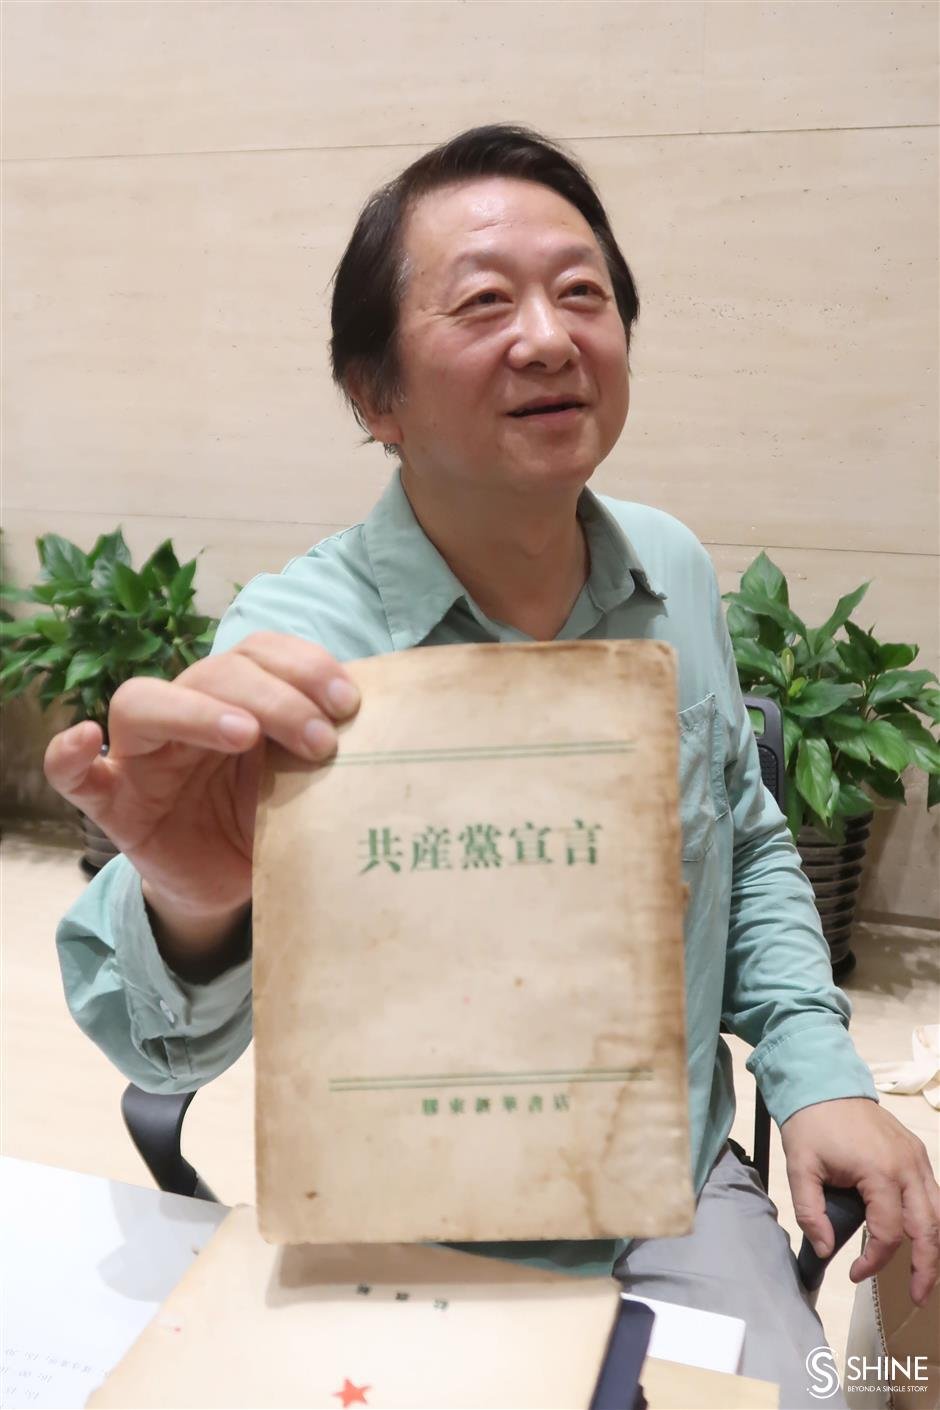 共産黨宣言
膠東新華書店
SHINE
BEYOND A SINGLE STORY